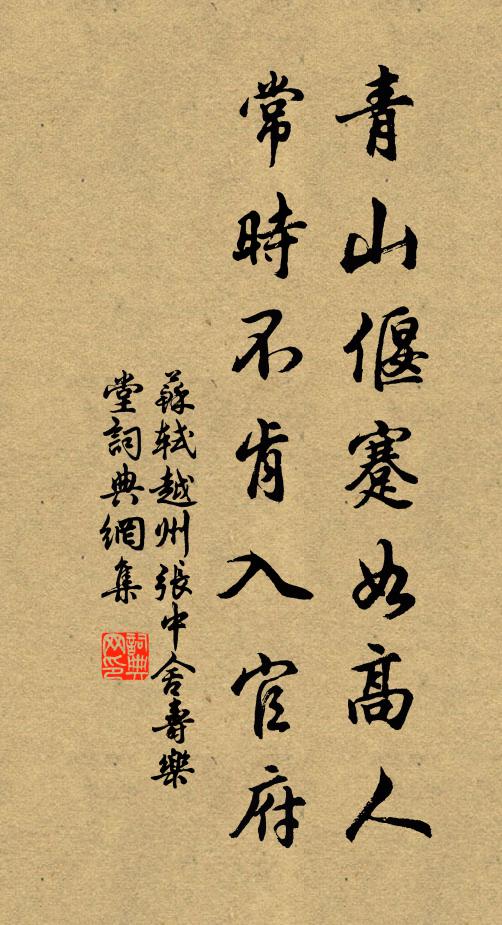 青山偃蹇如高人
常時不肯入官府
蘇軾越州張中舍壽樂
堂詞典網集
詞典网印